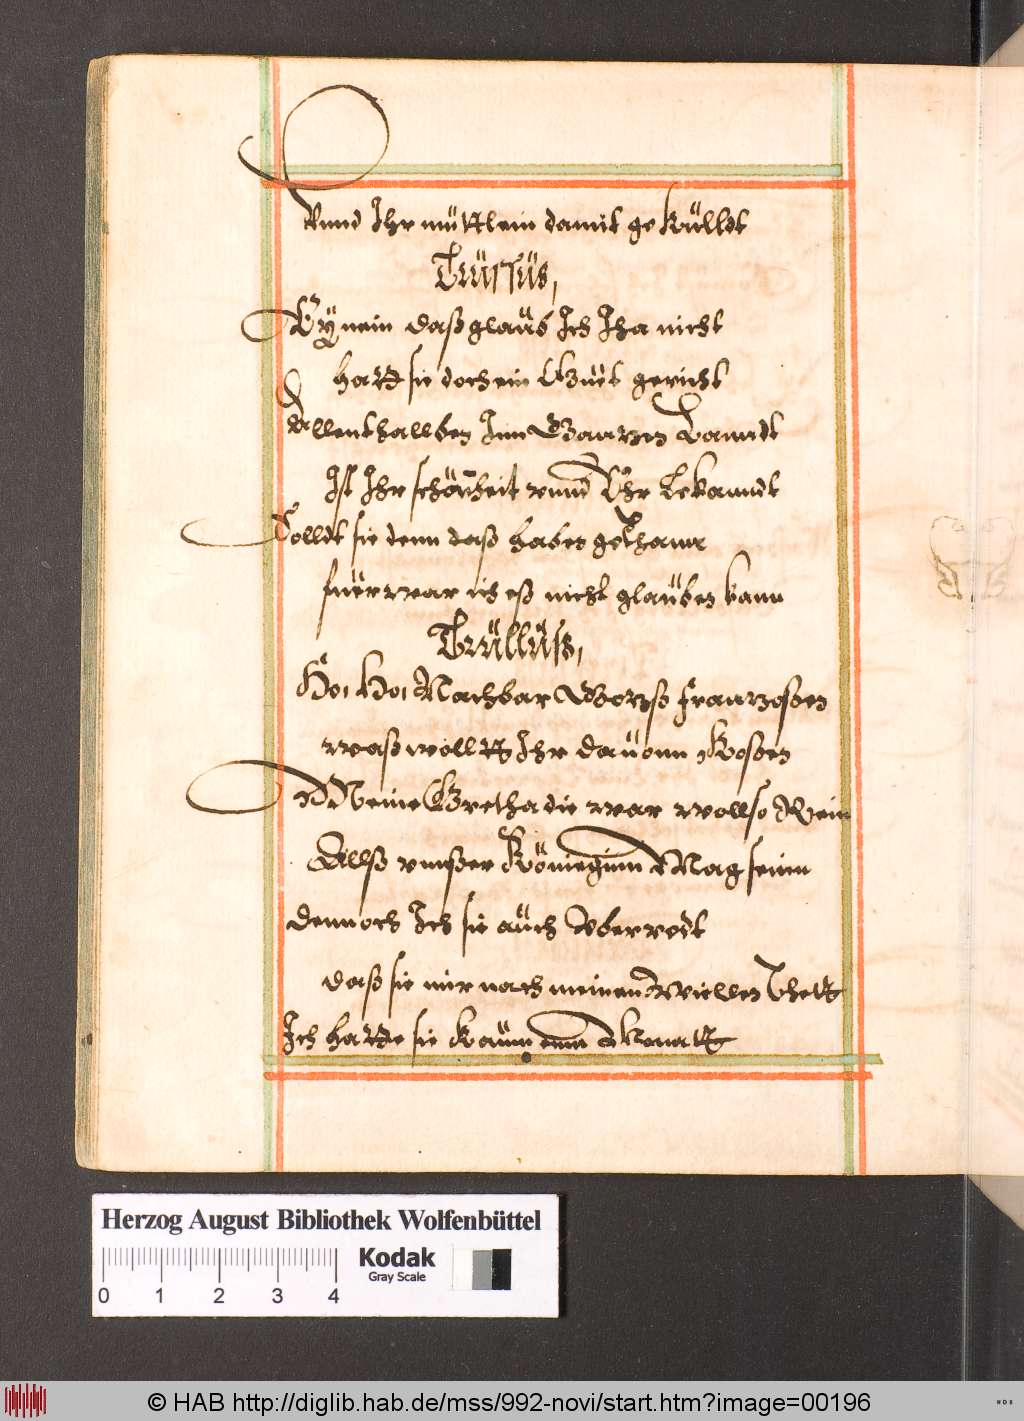 Vnnd Ihr müttlein damit gekülldt
Trüssüs,
Ey nein daß glaüb Ich Iha nicht
hatt sie doch ein Gutt gericht
Allenthallben Inn Gantzen Lanndt
Ist Ihr schönheit vnnd Ehr bekanndt
Solldt sie denn daß haben gethann
fuerwar ich eß nicht glaüben kann
Trülluß,
Ho, Ho, Nachbar Frantzosen
waß wollt Ihr dauonn Kosen
Meine Gretha die war woll so Rein
Allß vnßer Königinn Mag seinn
dennoch Ich sie aüch Vberredt
daß sie mir nach meinen Willen thett
Ich hatte sie kaum einn Monatt
Herzog August Bibliothek Wolfenbüttel
Kodak
Gray Scale
0 1 2 3 4
© HAB http://diglib.hab.de/mss/992-novi/start.htm?image=00196